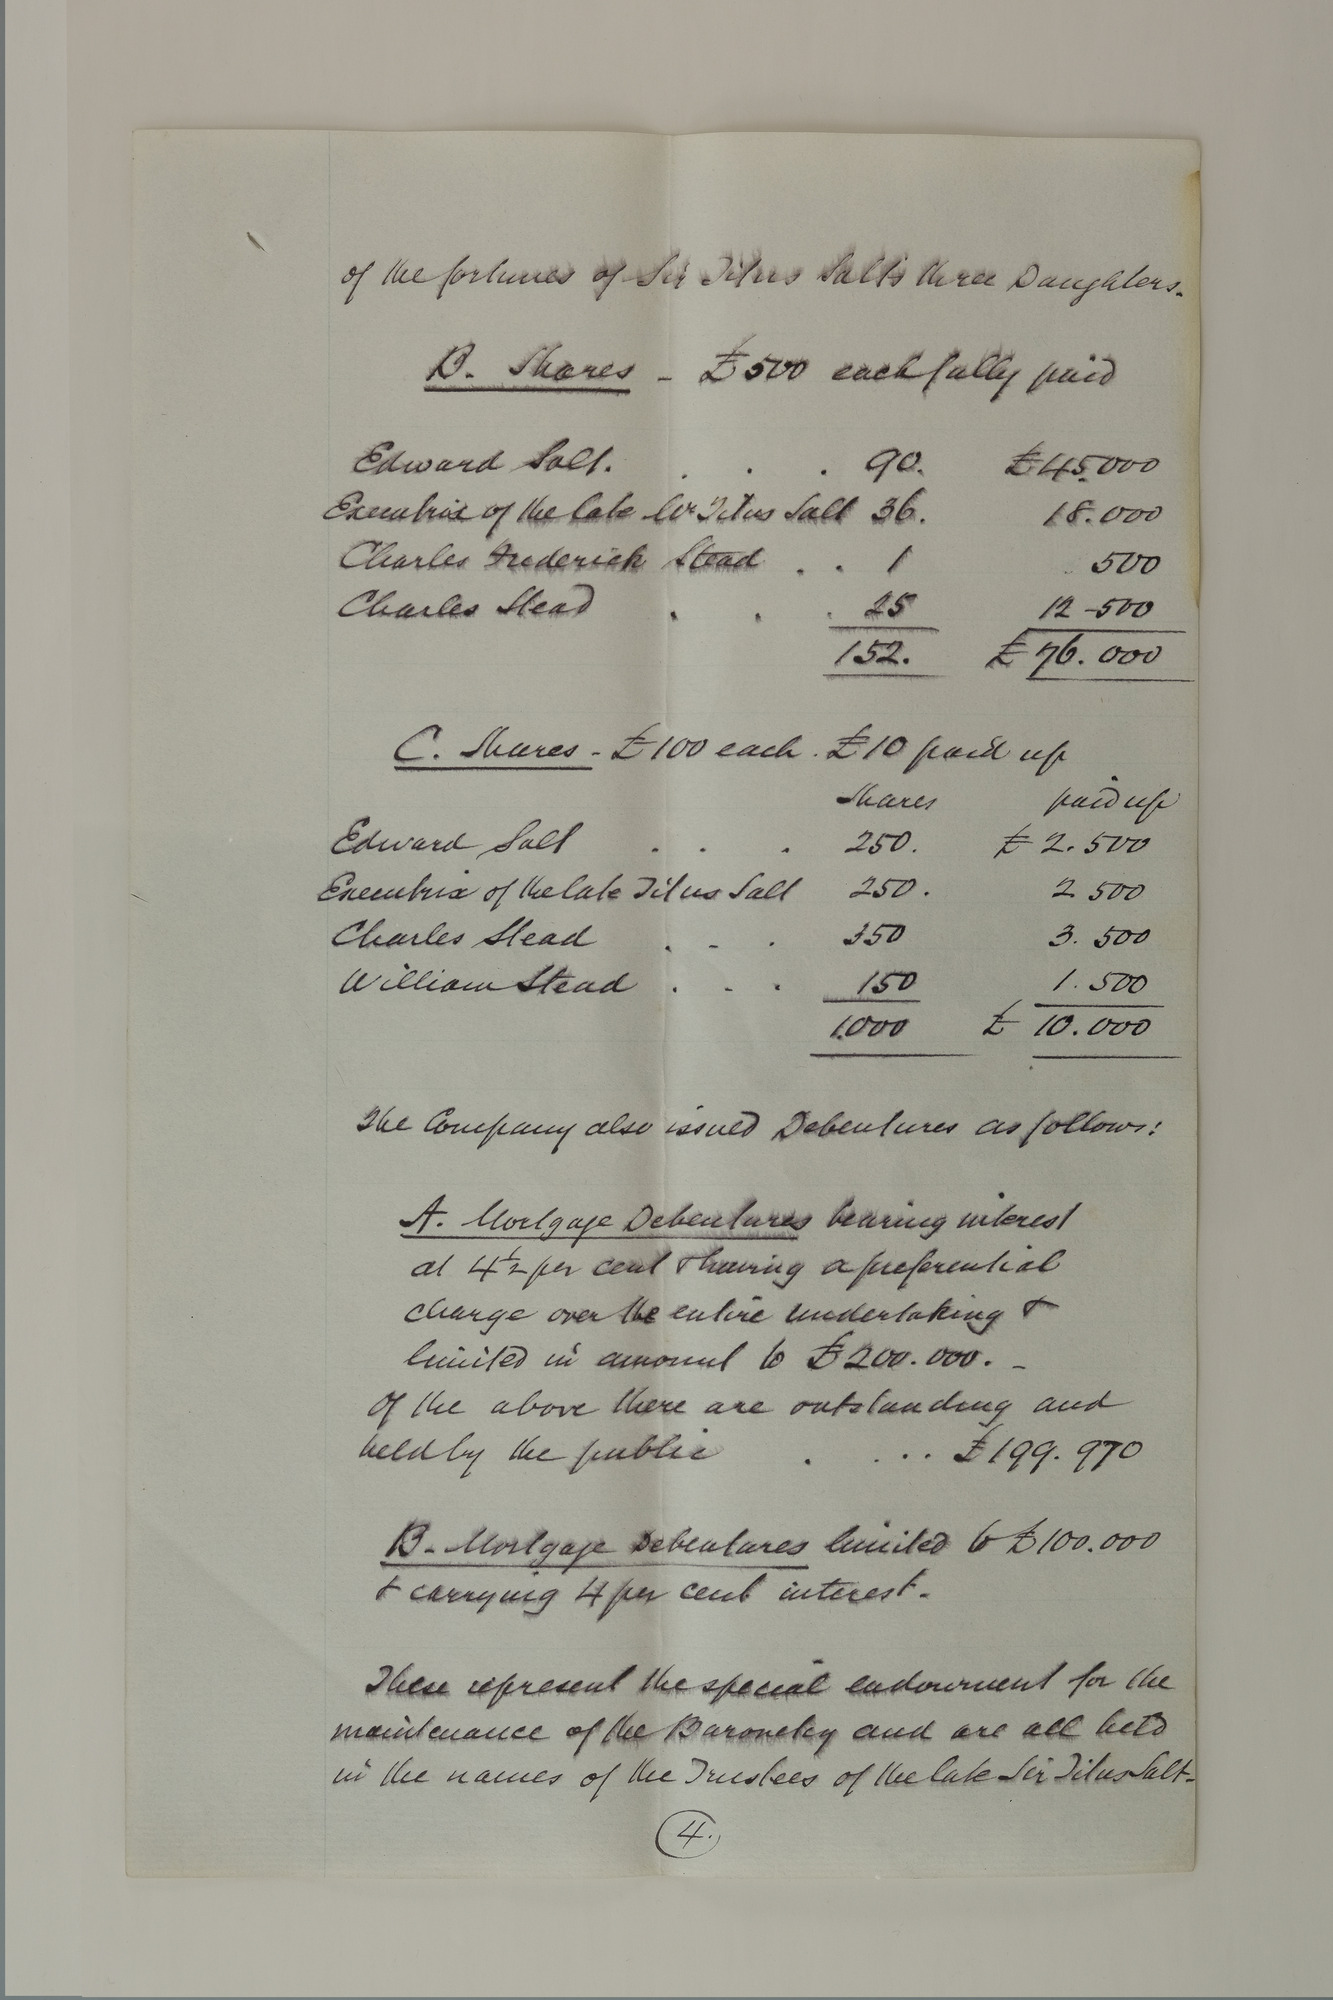 of the fortunes of Sir Titus Salt's three Daughters.
B. Shares - £500 each fully paid
Edward Salt. . . . 90. £45,000
Executrix of the late Sir Titus Salt 36. 18.000
Charles Frederick Stead . . 1 500
Charles Stead . . . 25 12-500
152. £76.000
C. Shares - £100 each. £10 paid up
Shares paid up
Edward Salt . . . 250. £2.500
Executrix of the late Titus Salt 250. 2 500
Charles Stead . - . 350 3. 500
William Stead . - . 150 1. 500
1.000 £ 10.000
The Company also issued Debentures as follows:
A. Mortgage Debentures bearing interest
at 4½ per cent & having a preferential
charge over the entire undertaking &
limited in amount to £200.000. -
Of the above there are outstanding and
held by the public . ... £199.970
B. Mortgage Debentures limited to £100.000
& carrying 4 per cent interest.
These represent the special endowment for the
maintenance of the Baronetcy and are all held
in the names of the Trustees of the late Sir Titus Salt-
4.